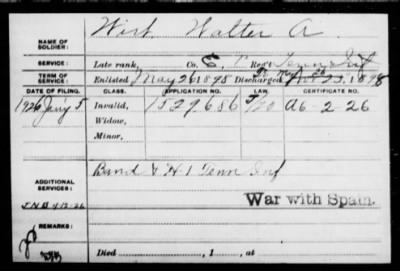 NAME OF SOLDIER: Wirt Walter A
SERVICE: Late rank, Co. Reg't Tenn Inf
TERM OF SERVICE: Enlisted May 26 1898 Discharged 1898
DATE OF FILING. CLASS. APPLICATION NO. LAW. CERTIFICATE NO.
1926 Jan'y 5 Invalid, 1529686 A6-2-26
Widow,
Minor,
ADDITIONAL SERVICES: Band & H 1 Tenn Inf
War with Spain.
REMARKS:
Died , 1 , at